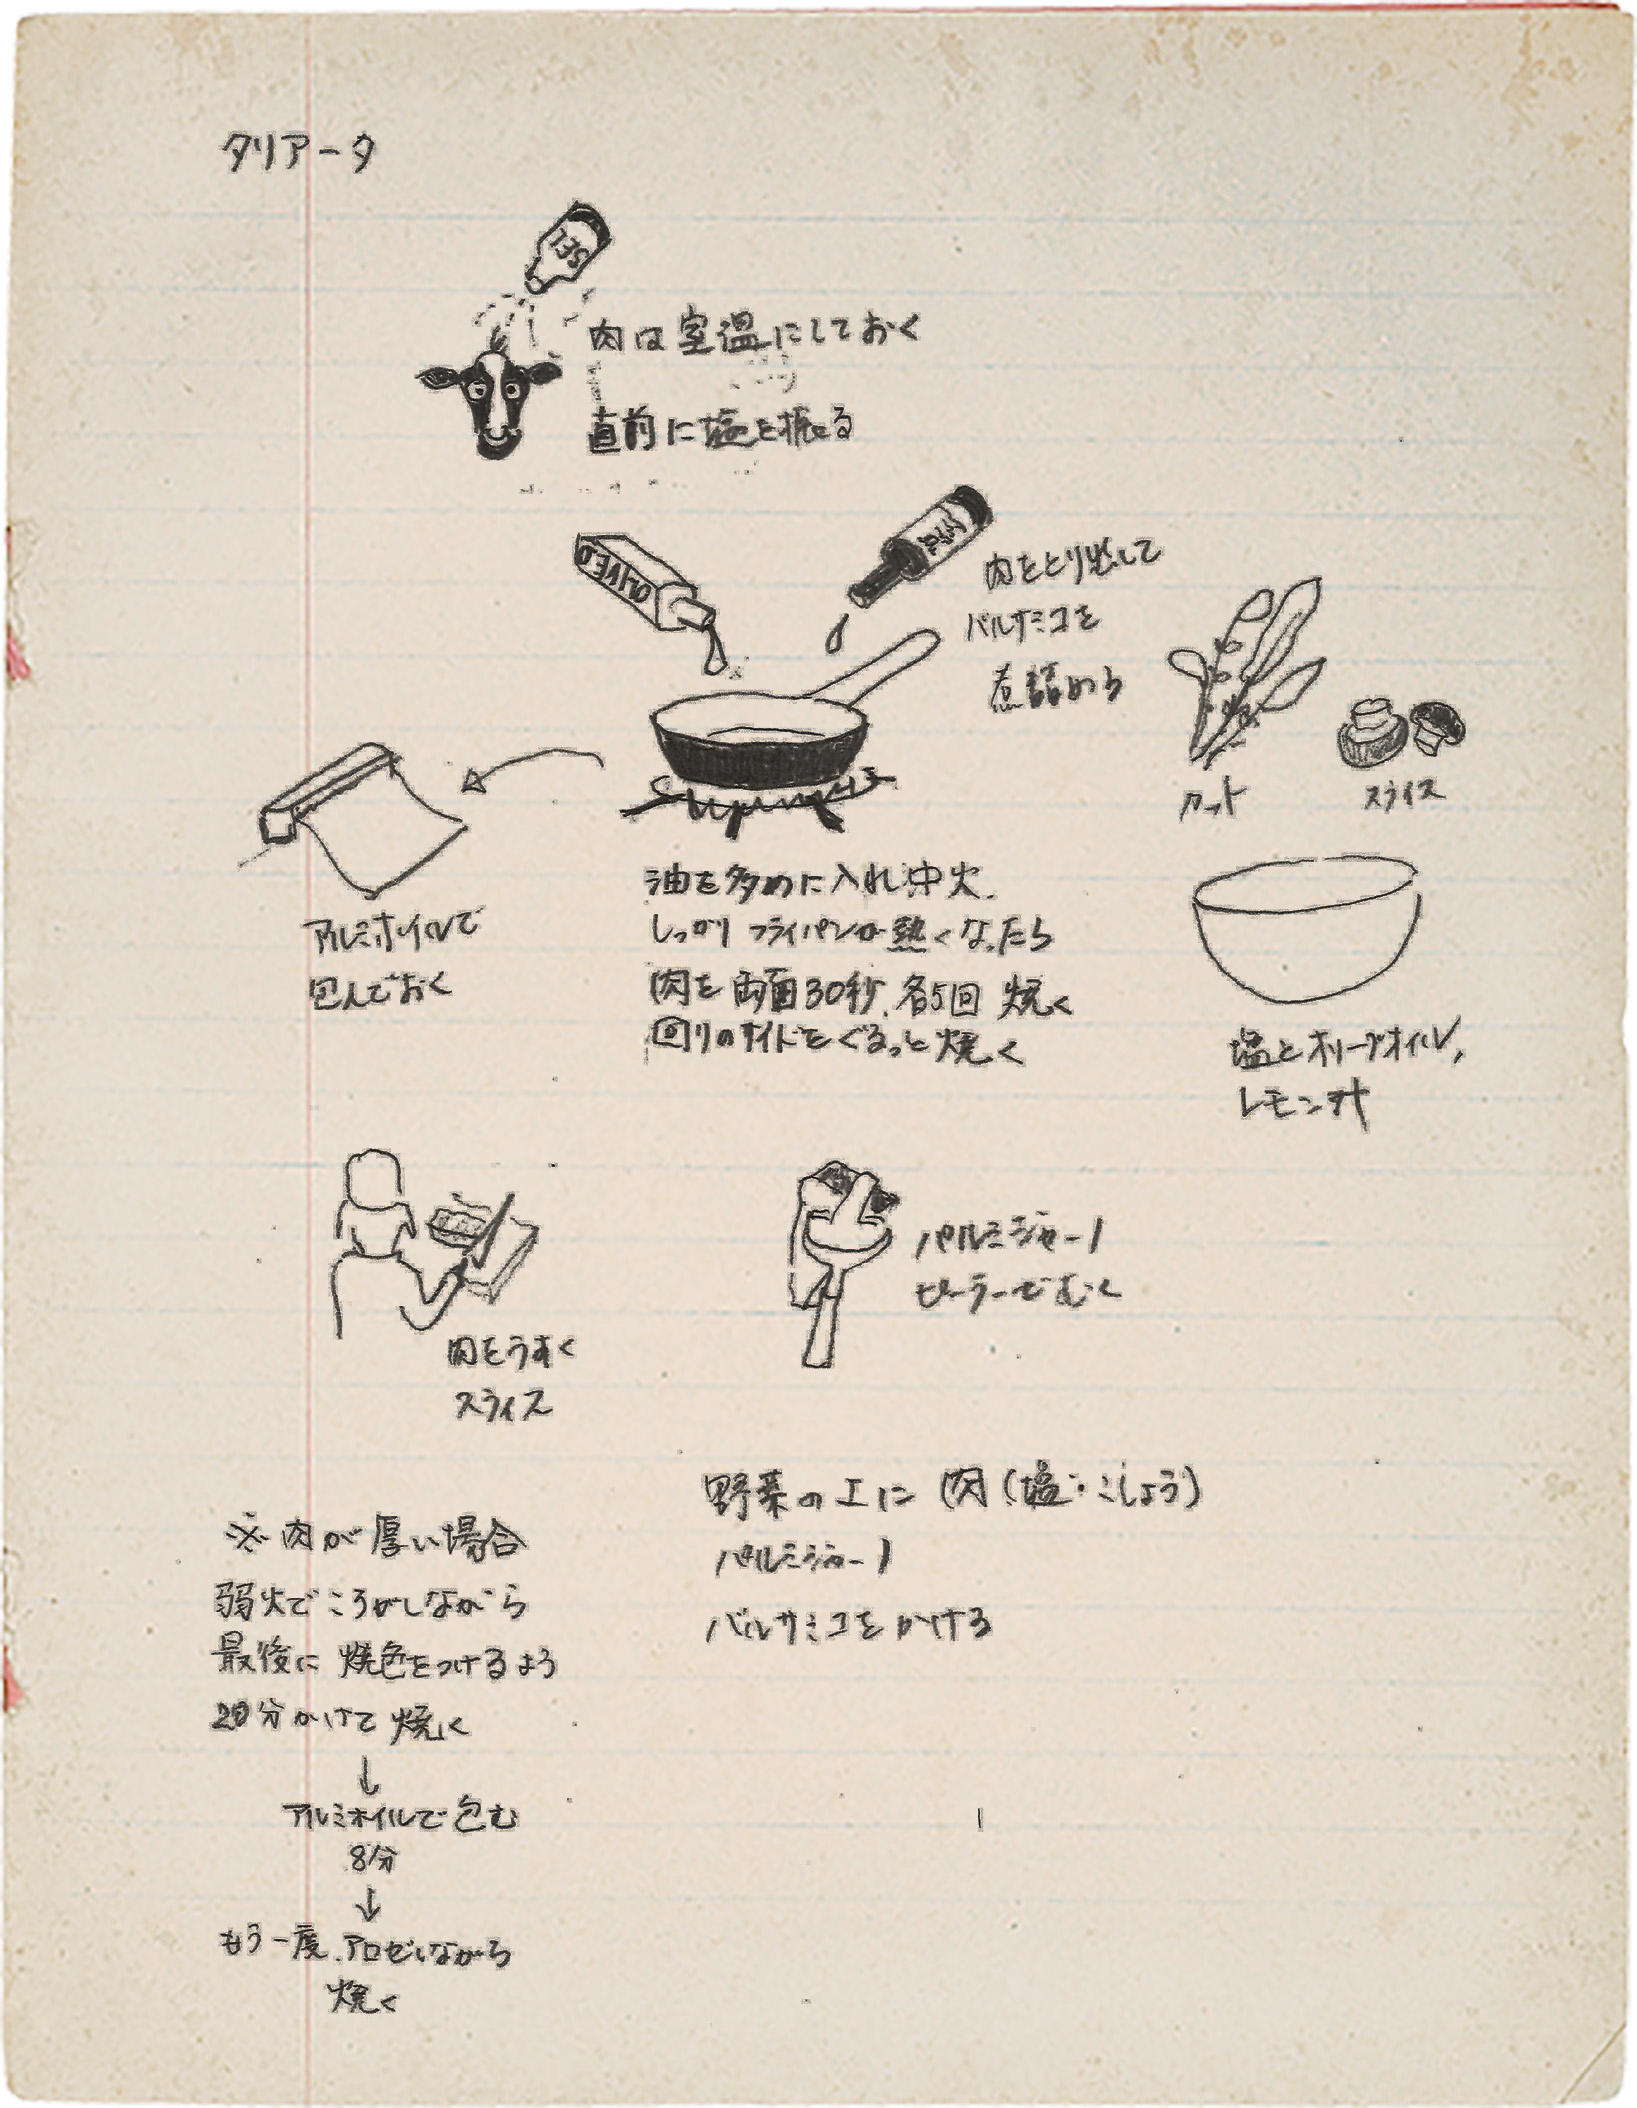 タリアータ
SEL
肉は室温にしておく
直前に塩を振る
OLIVE O
肉をとり出して
バルサミコを
煮詰める
カット
スライス
アルミホイルで
包んでおく
油を多めに入れ中火.
しっかりフライパンが熱くなったら
肉を両面30秒.各5回 焼く
回りのサイドをぐるっと焼く
塩とオリーブオイル,
レモン汁
肉をうすく
スライス
パルミジャーノ
ピーラーでむく
野菜の上に 肉(塩・こしょう)
パルミジャーノ
バルサミコをかける
※肉が厚い場合
弱火でころがしながら
最後に 焼色をつけるよう
20分かけて 焼く
↓
アルミホイルで包む
8分
↓
もう一度.アロゼしながら
焼く